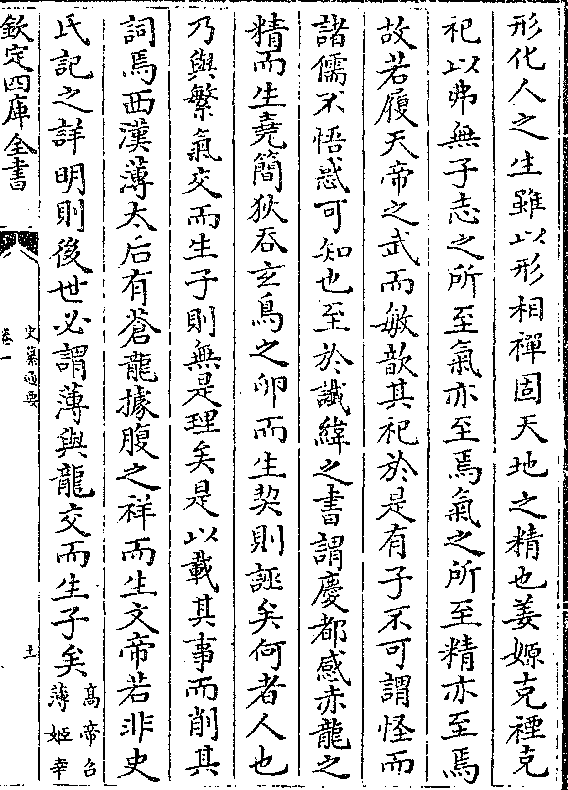 形化人之生雖以形相禪固天地之精也姜嫄克禋克
祀以弗無子志之所至氣亦至焉氣之所至精亦至焉
故若履天帝之武而敏歆其祀於是有子不可謂怪而
諸儒不悟惑可知也至於讖緯之書謂慶都感赤龍之
精而生堯簡狄吞玄鳥之卵而生契則誣矣何者人也
乃與繁氣交而生子則無是理矣是以載其事而削其
詞焉西漢薄太后有蒼龍據腹之祥而生文帝若非史
氏記之詳明則後世必謂薄與龍交而生子矣高帝召
薄姬幸
欽定四庫全書
史纂通要
卷一